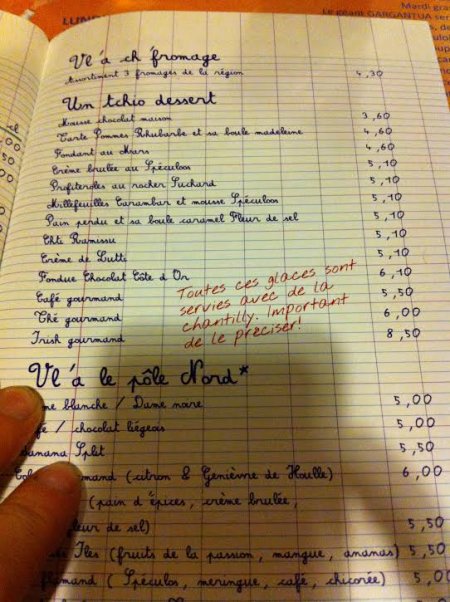 LUN
Mardi gra
Le géant GARGANTUA ser
Vl'à ch'fromage
Assortiment 3 fromages de la région 4,30
Un tchio dessert
Mousse chocolat maison 3,60
Tarte Pommes Rhubarbe et sa boule madeleine 4,60
Fondant au Mars 4,60
Crème brulée au Spéculoos 5,10
Profiteroles au rocher Suchard 5,10
Millefeuilles Carambar et mousse Spéculoos 5,10
Pain perdu et sa boule caramel Fleur de sel 5,10
Chti Ramissu 5,10
Crème de Lutti 5,10
Fondue Chocolat Côte d'Or 6,10
Café gourmand 5,50
Thé gourmand 6,00
Irish gourmand 8,50
Toutes ces glaces sont
servies avec de la
chantilly. Important
de le préciser!
Vl'à le pôle Nord*
me blanche / Dame noire 5,00
fé / chocolat liégeois 5,00
Banana Split 5,50
mand (citron & Genièvre de Houlle) 6,00
(pain d'épices, crème brulée,
leur de sel) 5,50
Iles (fruits de la passion, mangue, ananas) 5,50
flamand (Spéculos, meringue, café, chicorée) 5,00